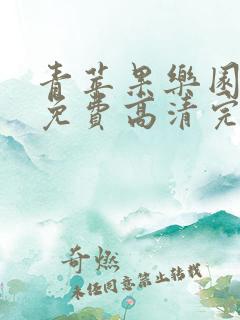 青苹果樂園
免費高清完
奇燃
未经同意禁止转载